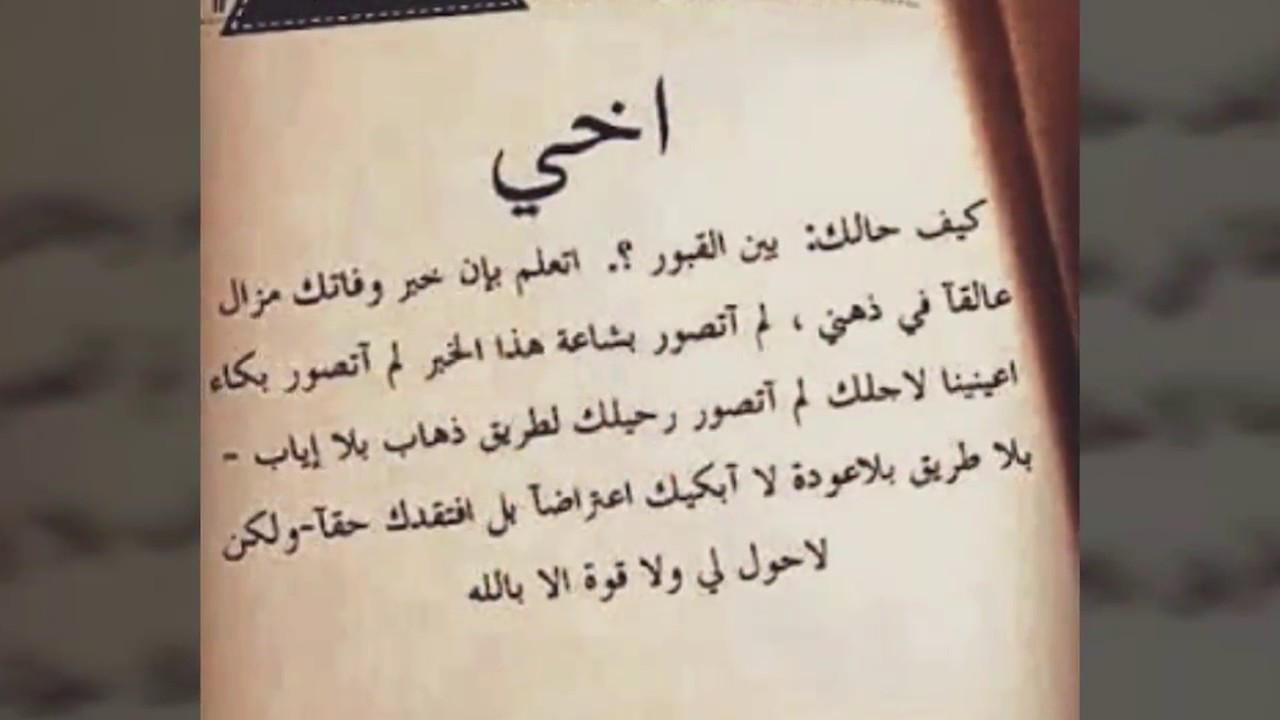 اخي
كيف حالك: بين القبور ؟. اتعلم بإن خبر وفاتك مزال
عالقآ في ذهني ، لم آتصور بشاعة هذا الخبر لم آتصور بكاء
اعينينا لاحلك لم آتصور رحيلك لطريق ذهاب بلا إياب -
بلا طريق بلاعودة لا آبكيك اعتراضآ بل افتقدك حقآ-ولكن
لاحول لي ولا قوة الا بالله